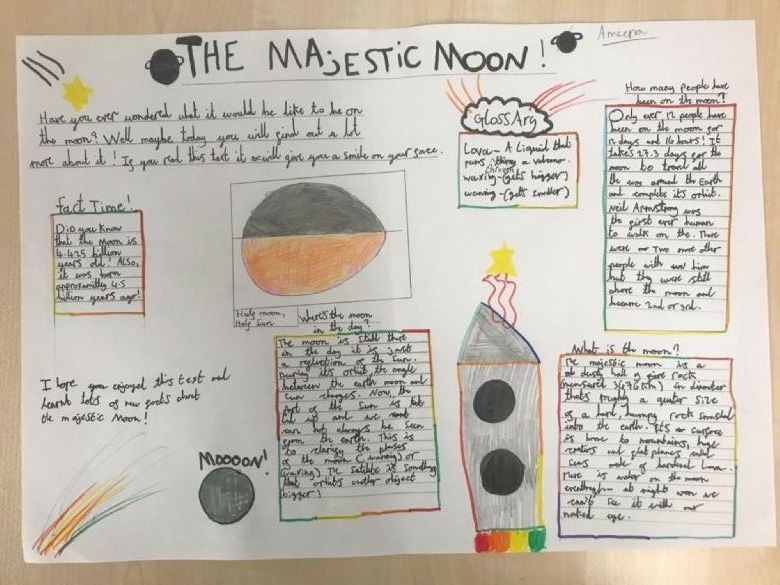 THE MAJESTIC MOON!
Ameepa
Have you ever wondered what it would be like to be on
the moon? Well maybe today you will find out a lot
more about it! If you read this text it will give you a smile on your face.
Fact Time!
Did you know
that the moon is
4.425 billion
years old! Also,
it was born
approximatly 4.5
billion years ago!
Half moon,
Half Sun
Where's the moon
in the day?
The moon is still there
in the day it is just
a reflection of the Sun.
During it's orbit the angle
between the earth moon and
Sun changes. Now, the
part of the Sun is
lit up and we
can not always be seen
from the earth. This is
to clarify the phases
of the moon (waning) or
(waxing) The satilite is something
that orbits another object
(bigger)
I hope you enjoyed this text and
learnt lots of new facts about
the majestic Moon!
MOOOON!
GlossAry
Lava - A liquid that
runs through a volcano.
waxing - (gets bigger)
waning - (gets smaller)
How many people have
been on the moon?
Only ever 12 people have
been on the moon for
12 days and 16 hours! It
takes 27.3 days for the
moon to travel all
the way around the Earth
and complete it's orbit.
Neil Armstrong was
the first ever human
to walk on the. There
were two more other
people with him
but they were still
above the moon and
became 2nd or 3rd.
What is the moon?
The majestic moon is a
dusty ball of rock
(mensures 3,476 km) in diameter
that's roughly a quater size
of a hard, bumpy rock
into the earth. It's surface
is home to mountains, huge
craters and flat planes
seas made of hardend lava.
There is water on the moon
at night we
can't see it with our
naked eye.